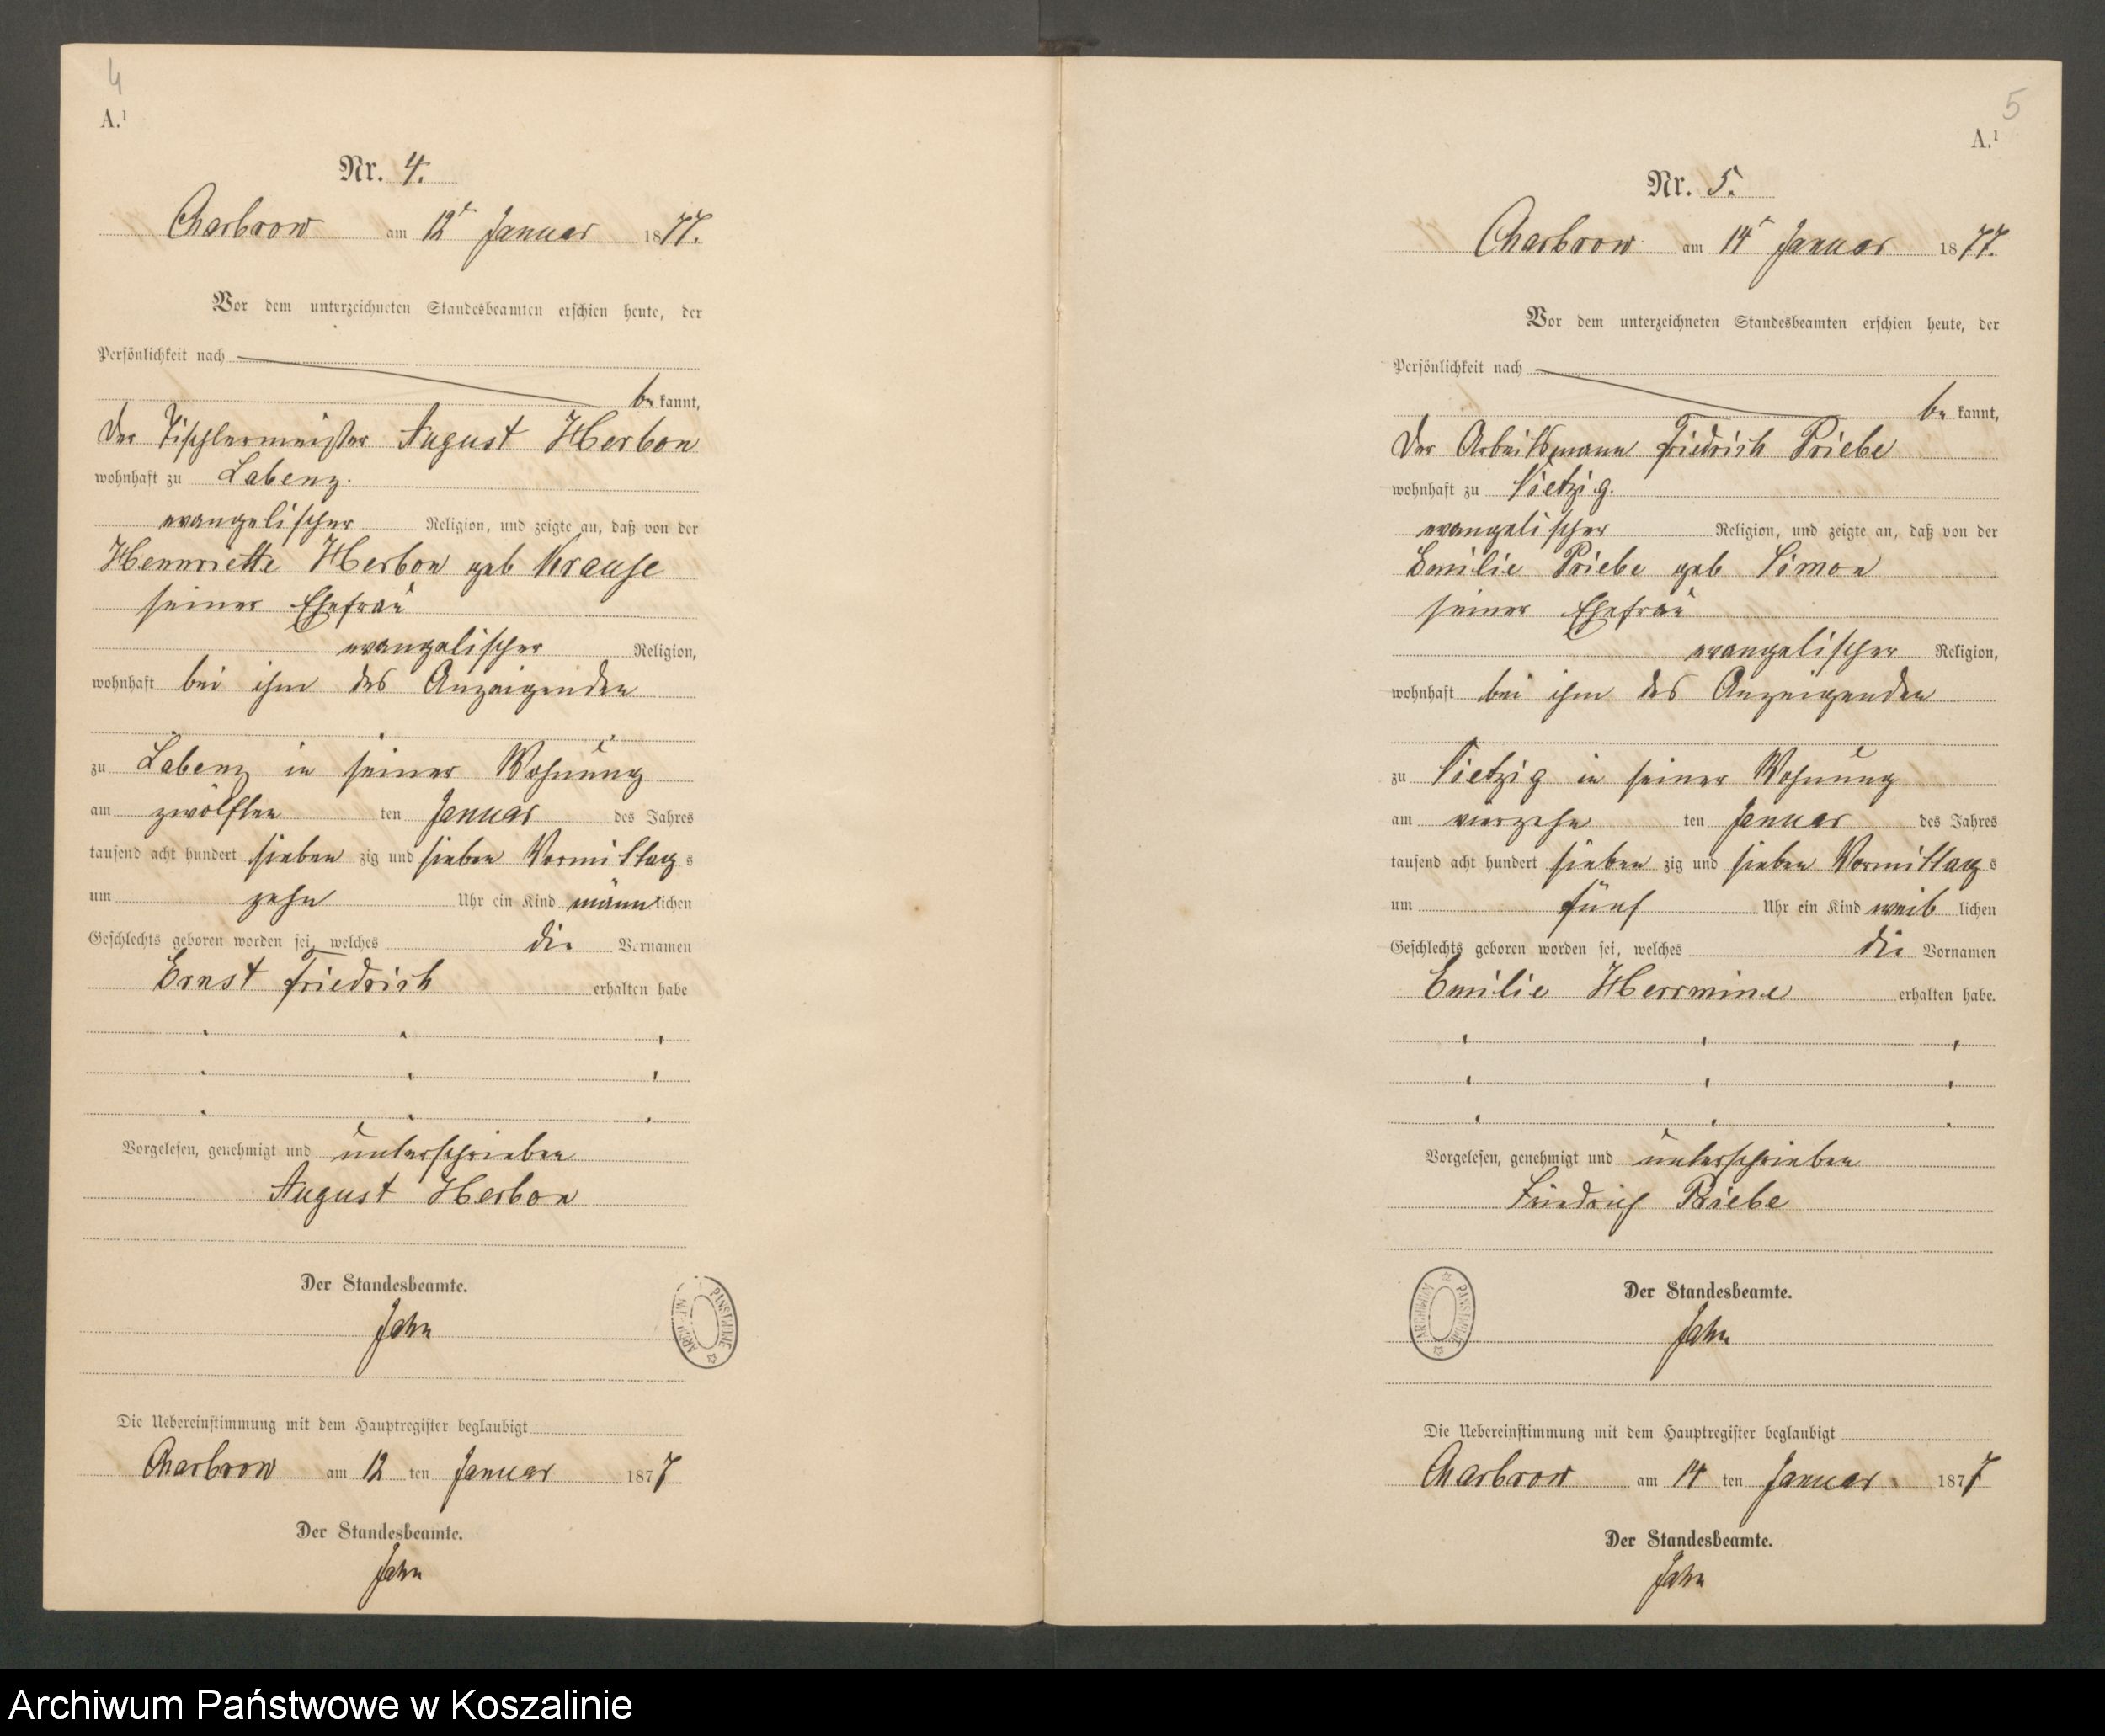 4
A.¹
Nr. 4.
Charbrow am 12ᵗ Januar 1877.
Vor dem unterzeichneten Standesbeamten erschien heute, der
Persönlichkeit nach
be kannt,
der Tischlermeister August Herbon
wohnhaft zu Labenz.
evangelischer Religion, und zeigte an, daß von der
Hennriette Herbon geb Krause
seiner Ehefrau
evangelischer Religion,
wohnhaft bei ihm des Anzeigenden
zu Labenz in seiner Wohnung
am zwölften ten Januar des Jahres
tausend acht hundert sieben zig und sieben Vormittag s
um zehn Uhr ein Kind männlichen
Geschlechts geboren worden sei, welches die Vornamen
Ernst Friedrich erhalten habe
Vorgelesen, genehmigt und unterschrieben
August Herbon
Der Standesbeamte.
Jahn
ARCHIWUM PAŃSTWOWE
Die Uebereinstimmung mit dem Hauptregister beglaubigt
Charbrow am 12 ten Januar 1877
Der Standesbeamte.
Jahn
5
A.¹
Nr. 5.
Charbrow am 14ᵗ Januar 1877.
Vor dem unterzeichneten Standesbeamten erschien heute, der
Persönlichkeit nach
be kannt,
der Arbeitsmann Friedrich Priebe
wohnhaft zu Vietzig.
evangelischer Religion, und zeigte an, daß von der
Emilie Priebe geb Simon
seiner Ehefrau
evangelischer Religion,
wohnhaft bei ihm des Anzeigenden
zu Vietzig in seiner Wohnung
am vierzehn ten Januar des Jahres
tausend acht hundert sieben zig und sieben Vormittag s
um fünf Uhr ein Kind weib lichen
Geschlechts geboren worden sei, welches die Vornamen
Emilie Herrmine erhalten habe.
Vorgelesen, genehmigt und unterschrieben
Friedrich Priebe
ARCHIWUM PAŃSTWOWE
Der Standesbeamte.
Jahn
Die Uebereinstimmung mit dem Hauptregister beglaubigt
Charbrow am 14 ten Januar 1877
Der Standesbeamte.
Jahn
Archiwum Państwowe w Koszalinie